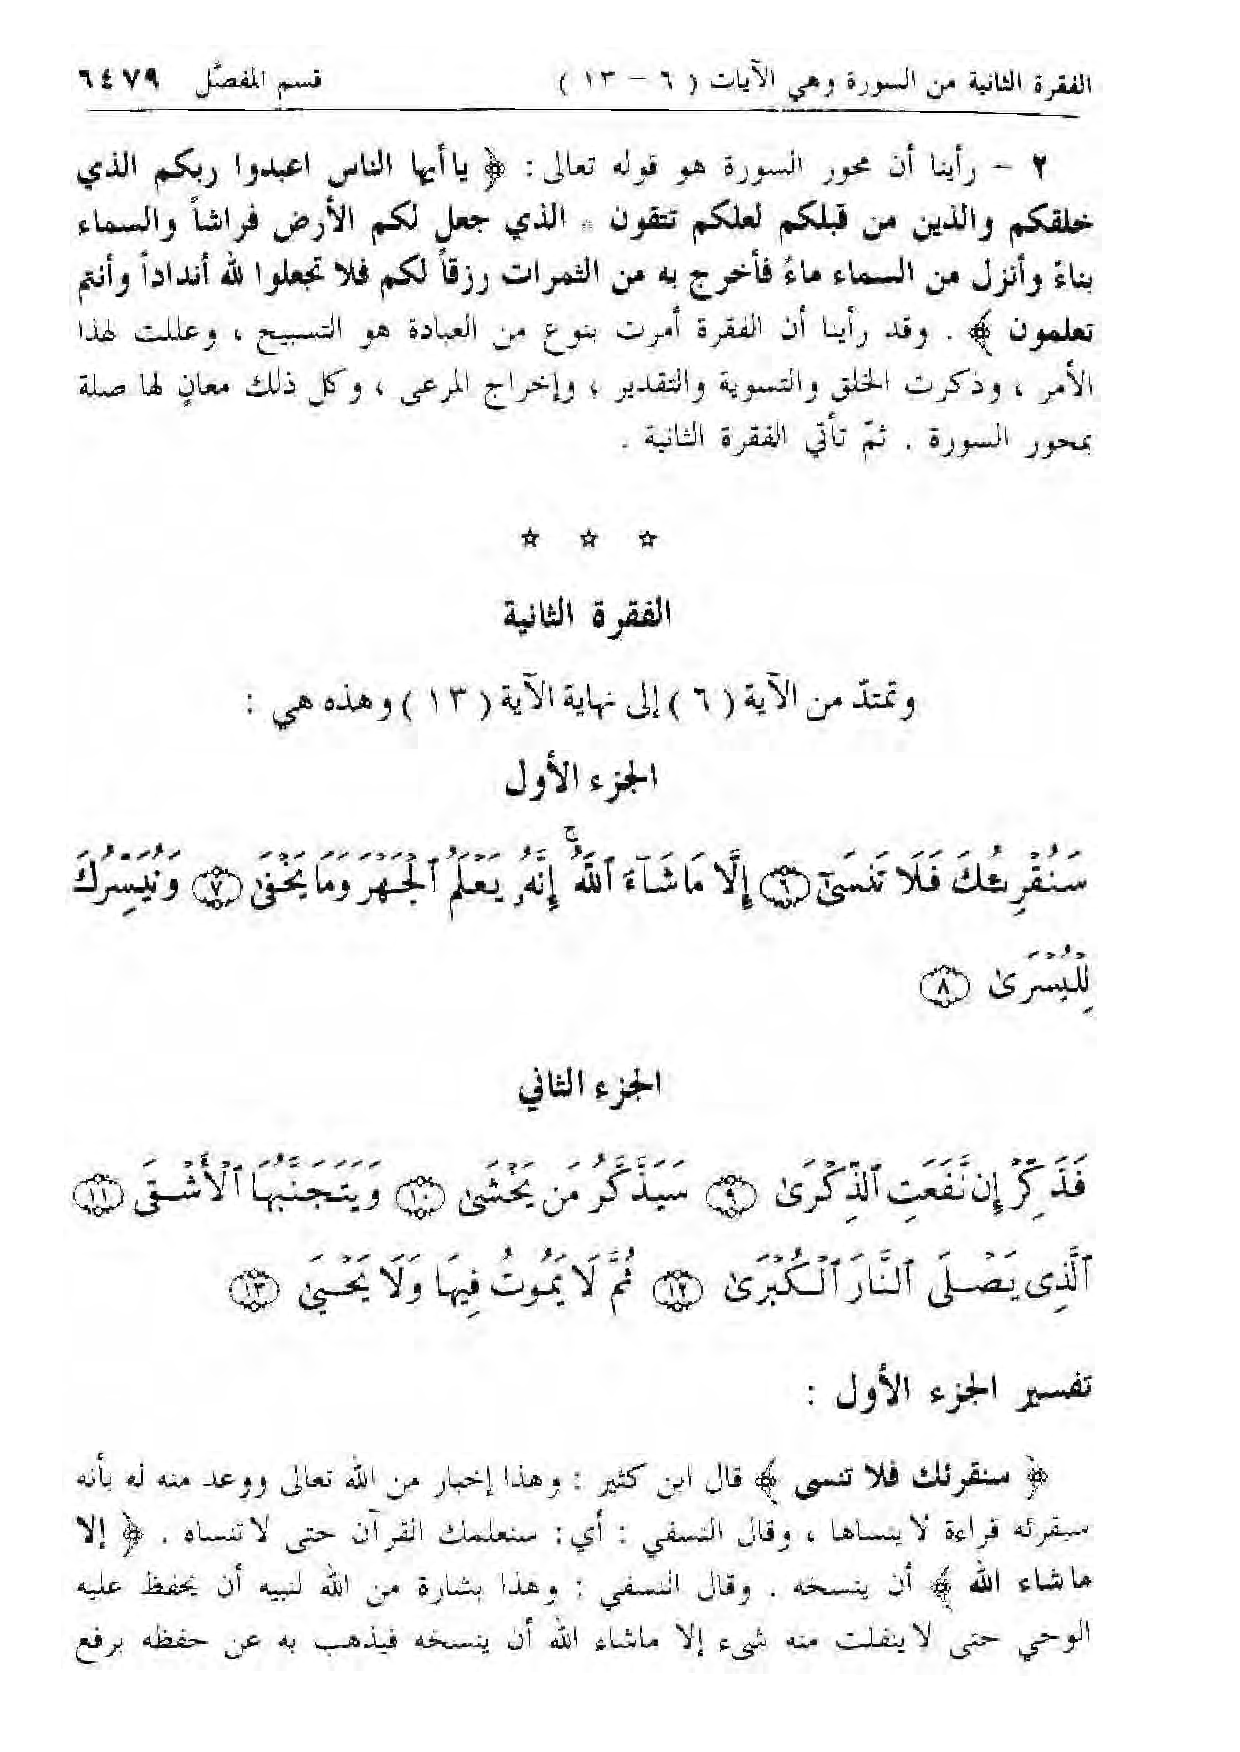 الفقرة الثانية من السورة وهي الآيات ( ٦ – ١٣ ) قسم المفصَّل ٦٤٧٩
٢ – رأينا أن محور السورة هو قوله تعالى : ﴿ ياأيها الناس اعبدوا ربكم الذي
خلقكم والذين من قبلكم لعلكم تتقون * الذي جعل لكم الأرض فراشاً والسماء
بناءً وأنزل من السماء ماءً فأخرج به من الثمرات رزقاً لكم فلا تجعلوا لله أنداداً وأنتم
تعلمون ﴾ . وقد رأينا أن الفقرة أمرت بنوع من العبادة هو التسبيح ، وعللت لهذا
الأمر ، وذكرت الخلق والتسوية والتقدير ، وإخراج المرعى ، وكل ذلك معانٍ لها صلة
بمحور السورة . ثمّ تأتي الفقرة الثانية .
☆ ☆ ☆
الفقرة الثانية
وتمتدّ من الآية ( ٦ ) إلى نهاية الآية ( ١٣ ) وهذه هي :
الجزء الأول
سَنُقْرِئُكَ فَلَا تَنسَىٰٓ ۝٦ إِلَّا مَا شَآءَ ٱللَّهُ ۚ إِنَّهُۥ يَعْلَمُ ٱلْجَهْرَ وَمَا يَخْفَىٰ ۝٧ وَنُيَسِّرُكَ
لِلْيُسْرَىٰ ۝٨
الجزء الثاني
فَذَكِّرْ إِن نَّفَعَتِ ٱلذِّكْرَىٰ ۝٩ سَيَذَّكَّرُ مَن يَخْشَىٰ ۝١٠ وَيَتَجَنَّبُهَا ٱلْأَشْقَى ۝١١
ٱلَّذِى يَصْلَى ٱلنَّارَ ٱلْكُبْرَىٰ ۝١٢ ثُمَّ لَا يَمُوتُ فِيهَا وَلَا يَحْيَىٰ ۝١٣
تفسير الجزء الأول :
﴿ سنقرئك فلا تنسى ﴾ قال ابن كثير : وهذا إخبار من الله تعالى ووعد منه له بأنه
سيقرئه قراءة لا ينساها ، وقال النسفي : أي : سنعلمك القرآن حتى لا تنساه . ﴿ إلا
ماشاء الله ﴾ أن ينسخه . وقال النسفي : وهذا بشارة من الله لنبيه أن يحفظ عليه
الوحي حتى لا ينفلت منه شيء إلا ماشاء الله أن ينسخه فيذهب به عن حفظه برفع